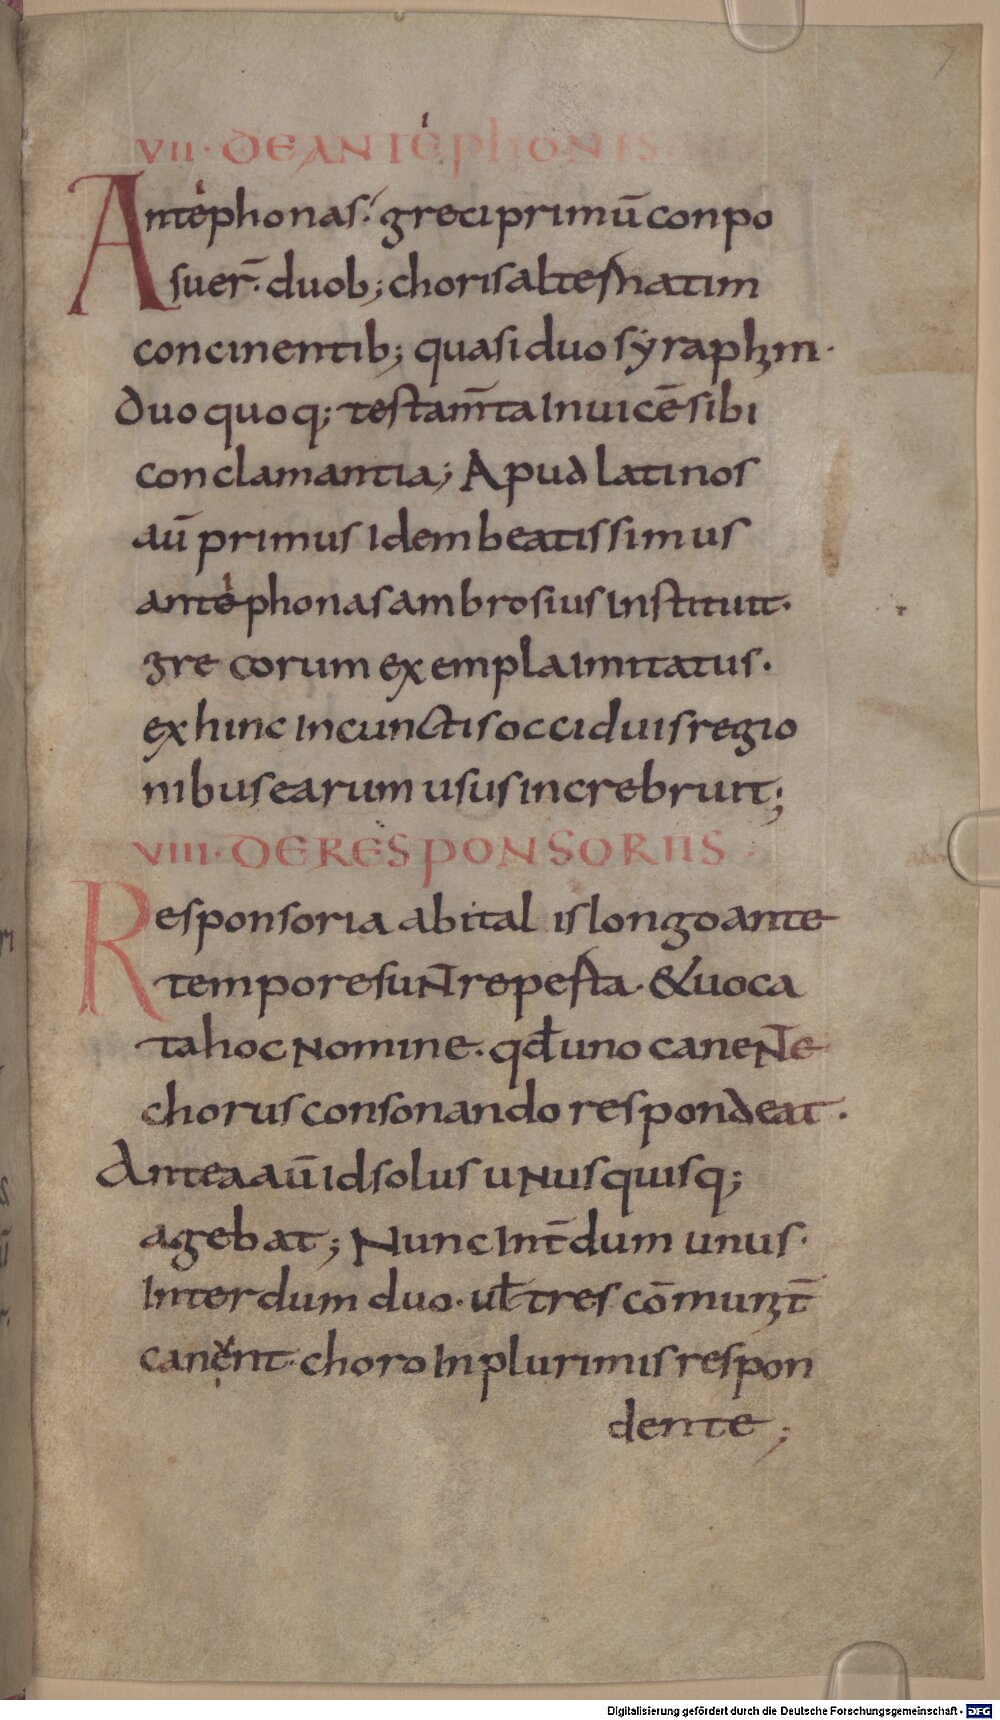 7
VII · DE ANTEPHONIS
Antephonas. greci primū conpo
suer̄. duob; choris alternatim
concinentib; quasi duo syraphim·
duo quoq; testam̄ta Inuicē sibi
conclamantia; Apud latinos
aū primus Idem beatissimus
antephonas ambrosius Instituit·
gre corum exempla Imitatus·
exhinc In cunctis occiduis regio
nibus earum usus increbruit;
VIII · DE RESPONSORIIS ·
Responsoria ab ital is longo ante
tempore suNT reperta· & uoca
ta hoc Nomine· qđ uno caneNTe
chorus consonando respondeat·
Antea aū Id solus uNus quisq;
agebat; Nunc Int̄dum unus·
Interdum duo· uł tres cōmunit̄
canent· choro In plurimis respon
dente;
Digitalisierung gefördert durch die Deutsche Forschungsgemeinschaft - DFG